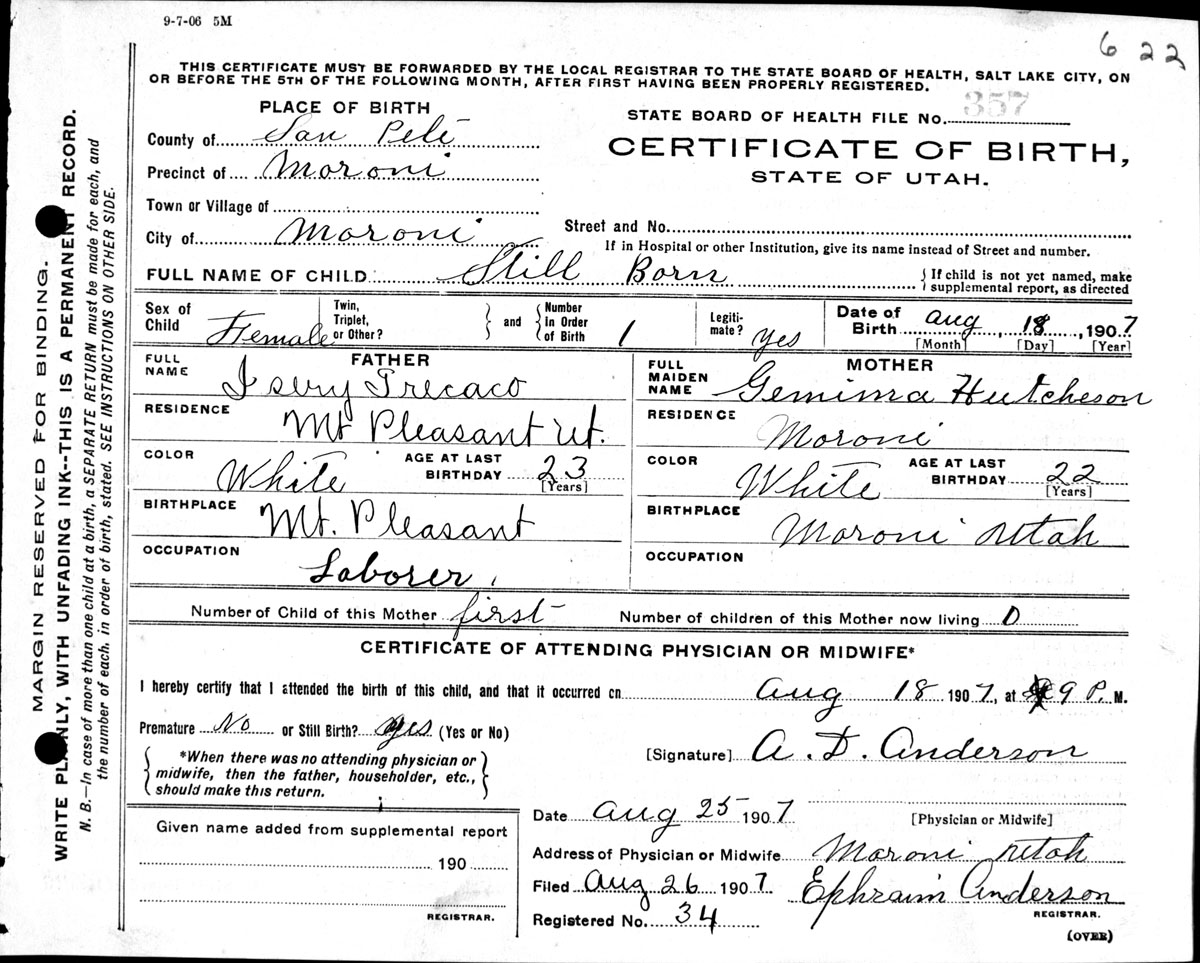 9-7-06 5M
6 22
THIS CERTIFICATE MUST BE FORWARDED BY THE LOCAL REGISTRAR TO THE STATE BOARD OF HEALTH, SALT LAKE CITY, ON
OR BEFORE THE 5TH OF THE FOLLOWING MONTH, AFTER FIRST HAVING BEEN PROPERLY REGISTERED.
PLACE OF BIRTH
STATE BOARD OF HEALTH FILE No. 357
County of San Pete
CERTIFICATE OF BIRTH,
Precinct of Moroni
STATE OF UTAH.
Town or Village of
Street and No.
City of Moroni
If in Hospital or other Institution, give its name instead of Street and number.
FULL NAME OF CHILD Still Born
If child is not yet named, make
supplemental report, as directed
Sex of Child Female
Twin, Triplet, or Other?
and
Number In Order of Birth 1
Legiti-mate? Yes
Date of Birth Aug, 18, 1907
[Month] [Day] [Year]
FATHER
FULL NAME
RESIDENCE Mt Pleasant Ut.
COLOR White
AGE AT LAST BIRTHDAY 23
[Years]
BIRTHPLACE Mt. Pleasant
OCCUPATION Laborer
MOTHER
FULL MAIDEN NAME Gemima Hutcheson
RESIDENCE Moroni
COLOR White
AGE AT LAST BIRTHDAY 22
[Years]
BIRTHPLACE Moroni Utah
OCCUPATION
Number of Child of this Mother first
Number of children of this Mother now living 0
CERTIFICATE OF ATTENDING PHYSICIAN OR MIDWIFE*
I hereby certify that I attended the birth of this child, and that it occurred on Aug 18 1907, at 9 P. M.
Premature No or Still Birth? Yes (Yes or No)
*When there was no attending physician or
midwife, then the father, householder, etc.,
should make this return.
[Signature] A. D. Anderson
Given name added from supplemental report
190
REGISTRAR.
Date Aug 25 1907
[Physician or Midwife]
Address of Physician or Midwife Moroni Utah
Filed Aug 26 1907 Ephraim Anderson
REGISTRAR.
Registered No. 34
(OVER)
MARGIN RESERVED FOR BINDING.
WRITE PLAINLY, WITH UNFADING INK--THIS IS A PERMANENT RECORD.
N. B.—In case of more than one child at a birth, a SEPARATE RETURN must be made for each, and
the number of each, in order of birth, stated. SEE INSTRUCTIONS ON OTHER SIDE.